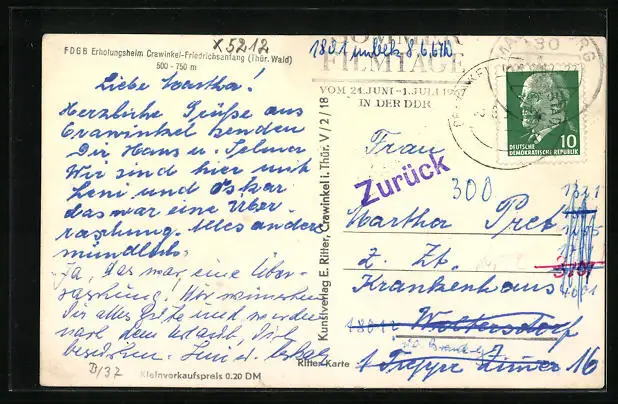 FDGB Erholungsheim Crawinkel-Friedrichsanfang (Thür. Wald)
500 - 750 m
X5212
Liebe Martha!
Herzliche Grüße aus
Crawinkel senden
Dir Hans u. Selmar
Wir sind hier mit
Leni und Oskar
das war eine Über-
raschung. Alles andere
mündlich.
Ja, das war eine Über-
raschung! Wir wünschen
Dir alles Gute und werden
nach dem Urlaub Dich
besuchen. Leni u. Oskar
B/37
Kleinverkaufspreis 0.20 DM
Kunstverlag E. Ritter, Crawinkel i. Thür. V/2/18
Ritter-Karte
1801 unbek. 8.6.
SOMMER
FILMTAGE
VOM 21. JUNI - 1. JULI
IN DER DDR
DEUTSCHE
DEMOKRATISCHE REPUBLIK
10
Zurück
300
Frau
Martha
z. Zt.
Krankenhaus
1801 Woltersdorf